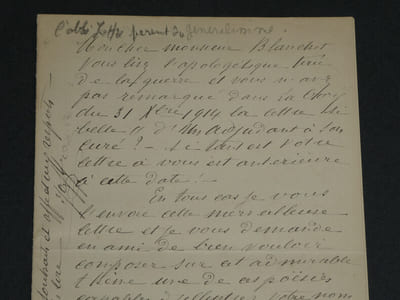 l'abbé Joffre parent du généralissime
Mon cher monsieur Blanchet
Vous lisez l'apologétique tirée
de la guerre et vous n'avez
pas remarqué dans la Croix
du 31 Xbre 1914 la lettre si
belle d'un adjudant à son
curé? - si tant est votre
lettre à vous est antérieure
à cette date! -
En tous cas je vous
l'envoie cette merveilleuse
lettre et je vous demande
en ami de bien vouloir
composer sur cet admirable
thème une de ces poésies
souhaits et affectueux respects -